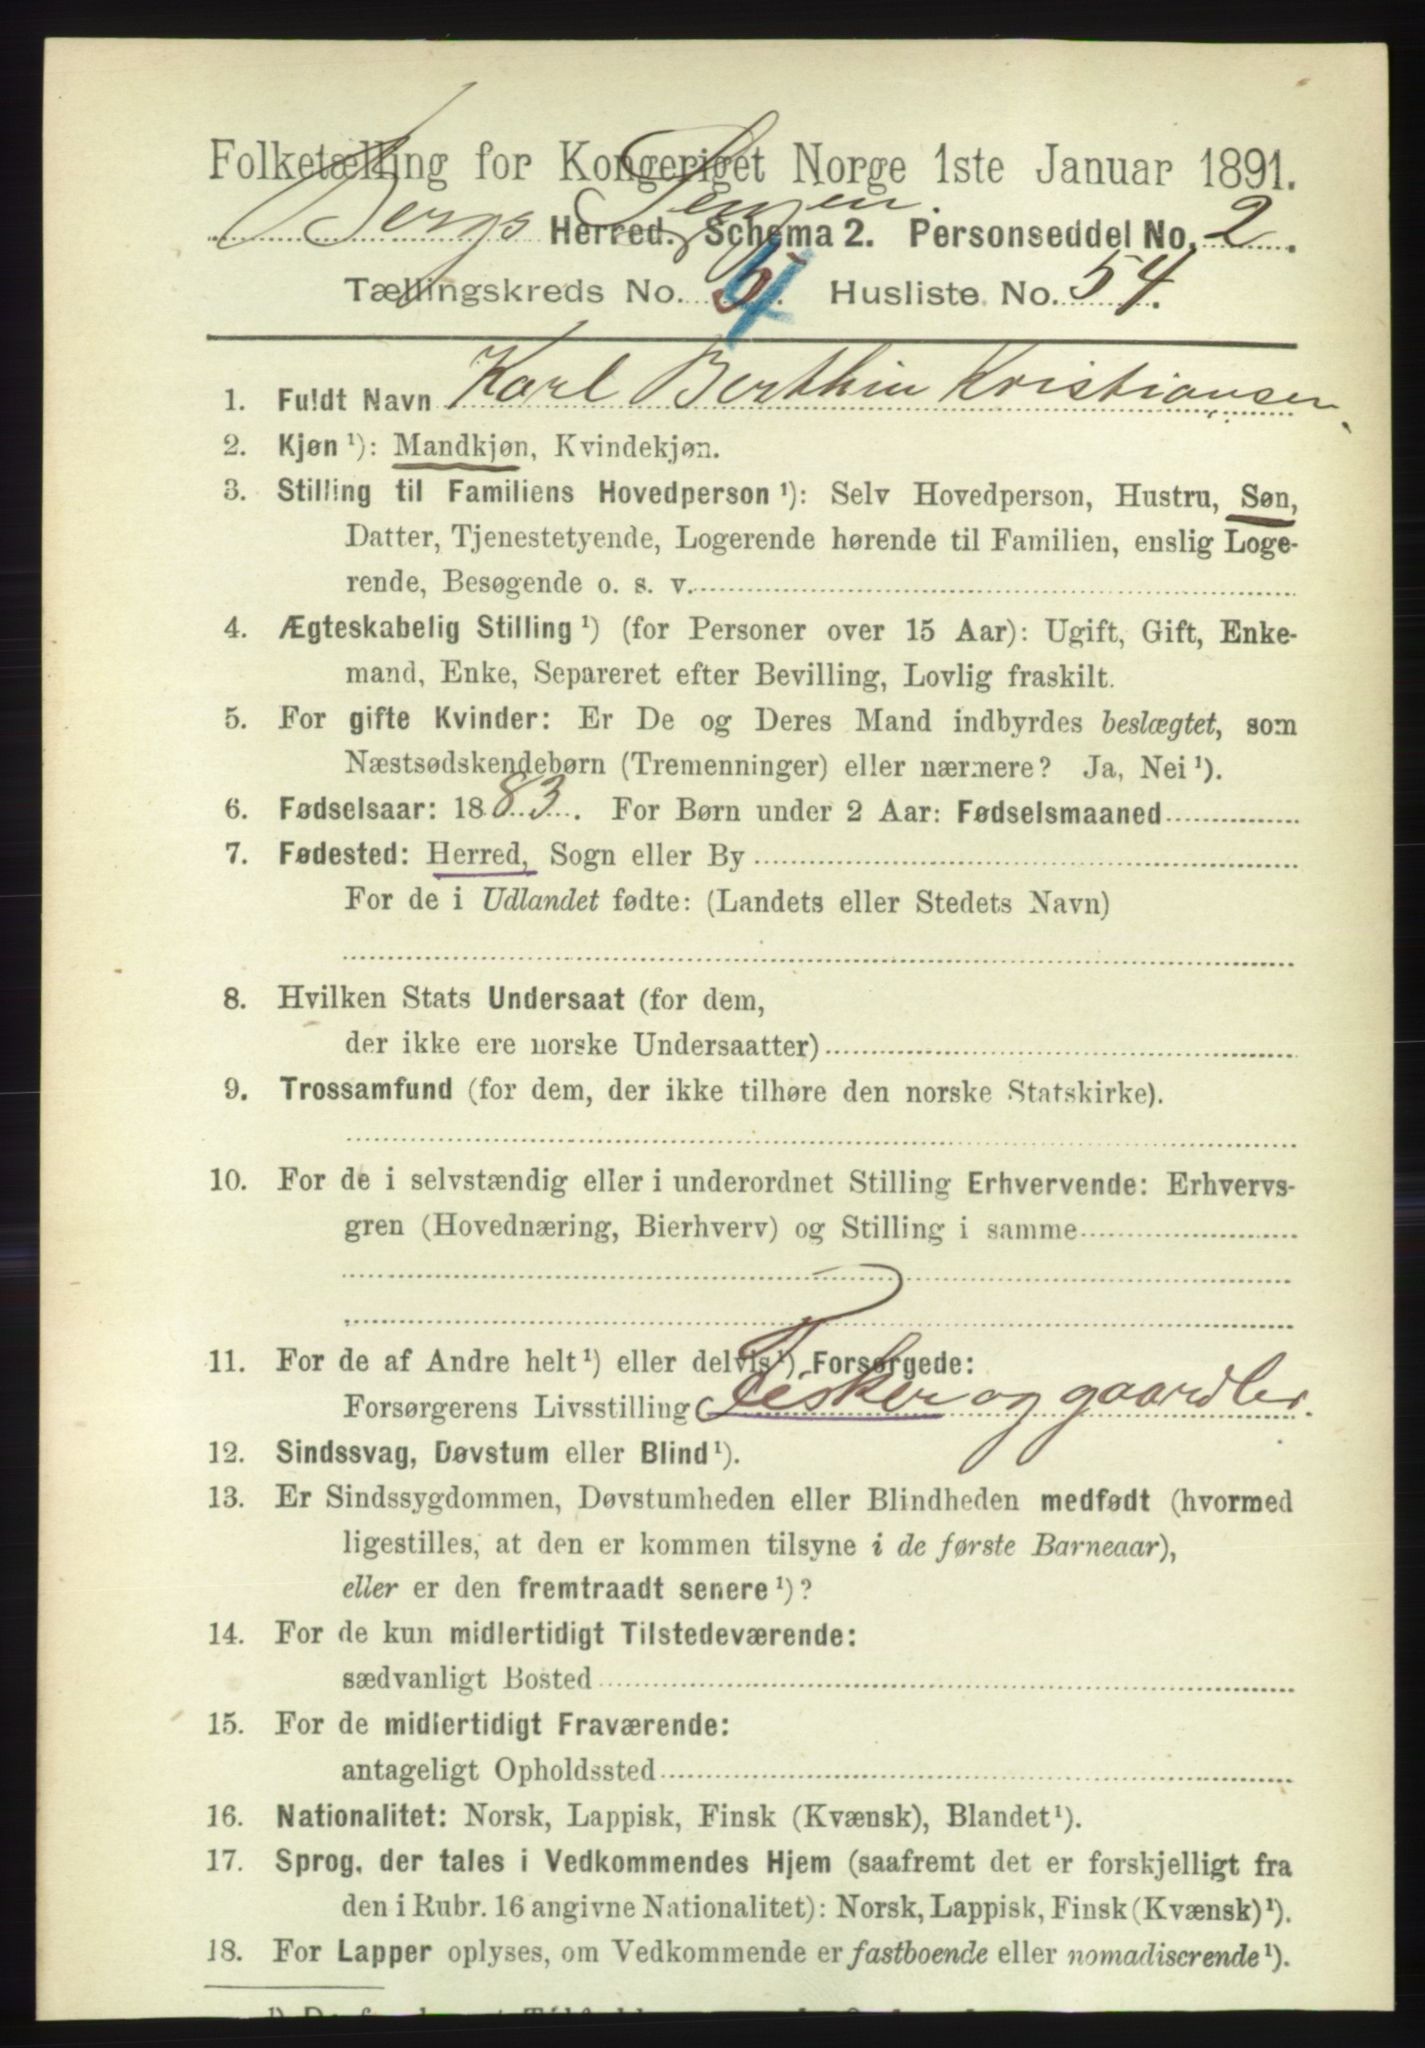 Folketælling for Kongeriget Norge 1ste Januar 1891.
Bergs Herred. Schema 2. Personseddel No. 2.
Tællingskreds No. 4. Husliste No. 54.
1. Fuldt Navn Karl Berthin Kristiansen.
2. Kjøn ¹): Mandkjøn, Kvindekjøn.
3. Stilling til Familiens Hovedperson ¹): Selv Hovedperson, Hustru, Søn,
Datter, Tjenestetyende, Logerende hørende til Familien, enslig Loge-
rende, Besøgende o. s. v.
4. Ægteskabelig Stilling ¹) (for Personer over 15 Aar): Ugift, Gift, Enke-
mand, Enke, Separeret efter Bevilling, Lovlig fraskilt.
5. For gifte Kvinder: Er De og Deres Mand indbyrdes beslægtet, som
Næstsødskendebørn (Tremenninger) eller nærmere? Ja, Nei ¹).
6. Fødselsaar: 1883. For Børn under 2 Aar: Fødselsmaaned
7. Fødested: Herred, Sogn eller By
For de i Udlandet fødte: (Landets eller Stedets Navn)
8. Hvilken Stats Undersaat (for dem,
der ikke ere norske Undersaatter)
9. Trossamfund (for dem, der ikke tilhøre den norske Statskirke).
10. For de i selvstændig eller i underordnet Stilling Erhvervende: Erhvervs-
gren (Hovednæring, Bierhverv) og Stilling i samme
11. For de af Andre helt ¹) eller delvis ¹) Forsørgede:
Forsørgerens Livsstilling Fisker og gaardbr.
12. Sindssvag, Døvstum eller Blind ¹).
13. Er Sindssygdommen, Døvstumheden eller Blindheden medfødt (hvormed
ligestilles, at den er kommen tilsyne i de første Barneaar),
eller er den fremtraadt senere ¹)?
14. For de kun midlertidigt Tilstedeværende:
sædvanligt Bosted
15. For de midlertidigt Fraværende:
antageligt Opholdssted
16. Nationalitet: Norsk, Lappisk, Finsk (Kvænsk), Blandet ¹).
17. Sprog, der tales i Vedkommendes Hjem (saafremt det er forskjelligt fra
den i Rubr. 16 angivne Nationalitet): Norsk, Lappisk, Finsk (Kvænsk) ¹).
18. For Lapper oplyses, om Vedkommende er fastboende eller nomadiserende ¹).